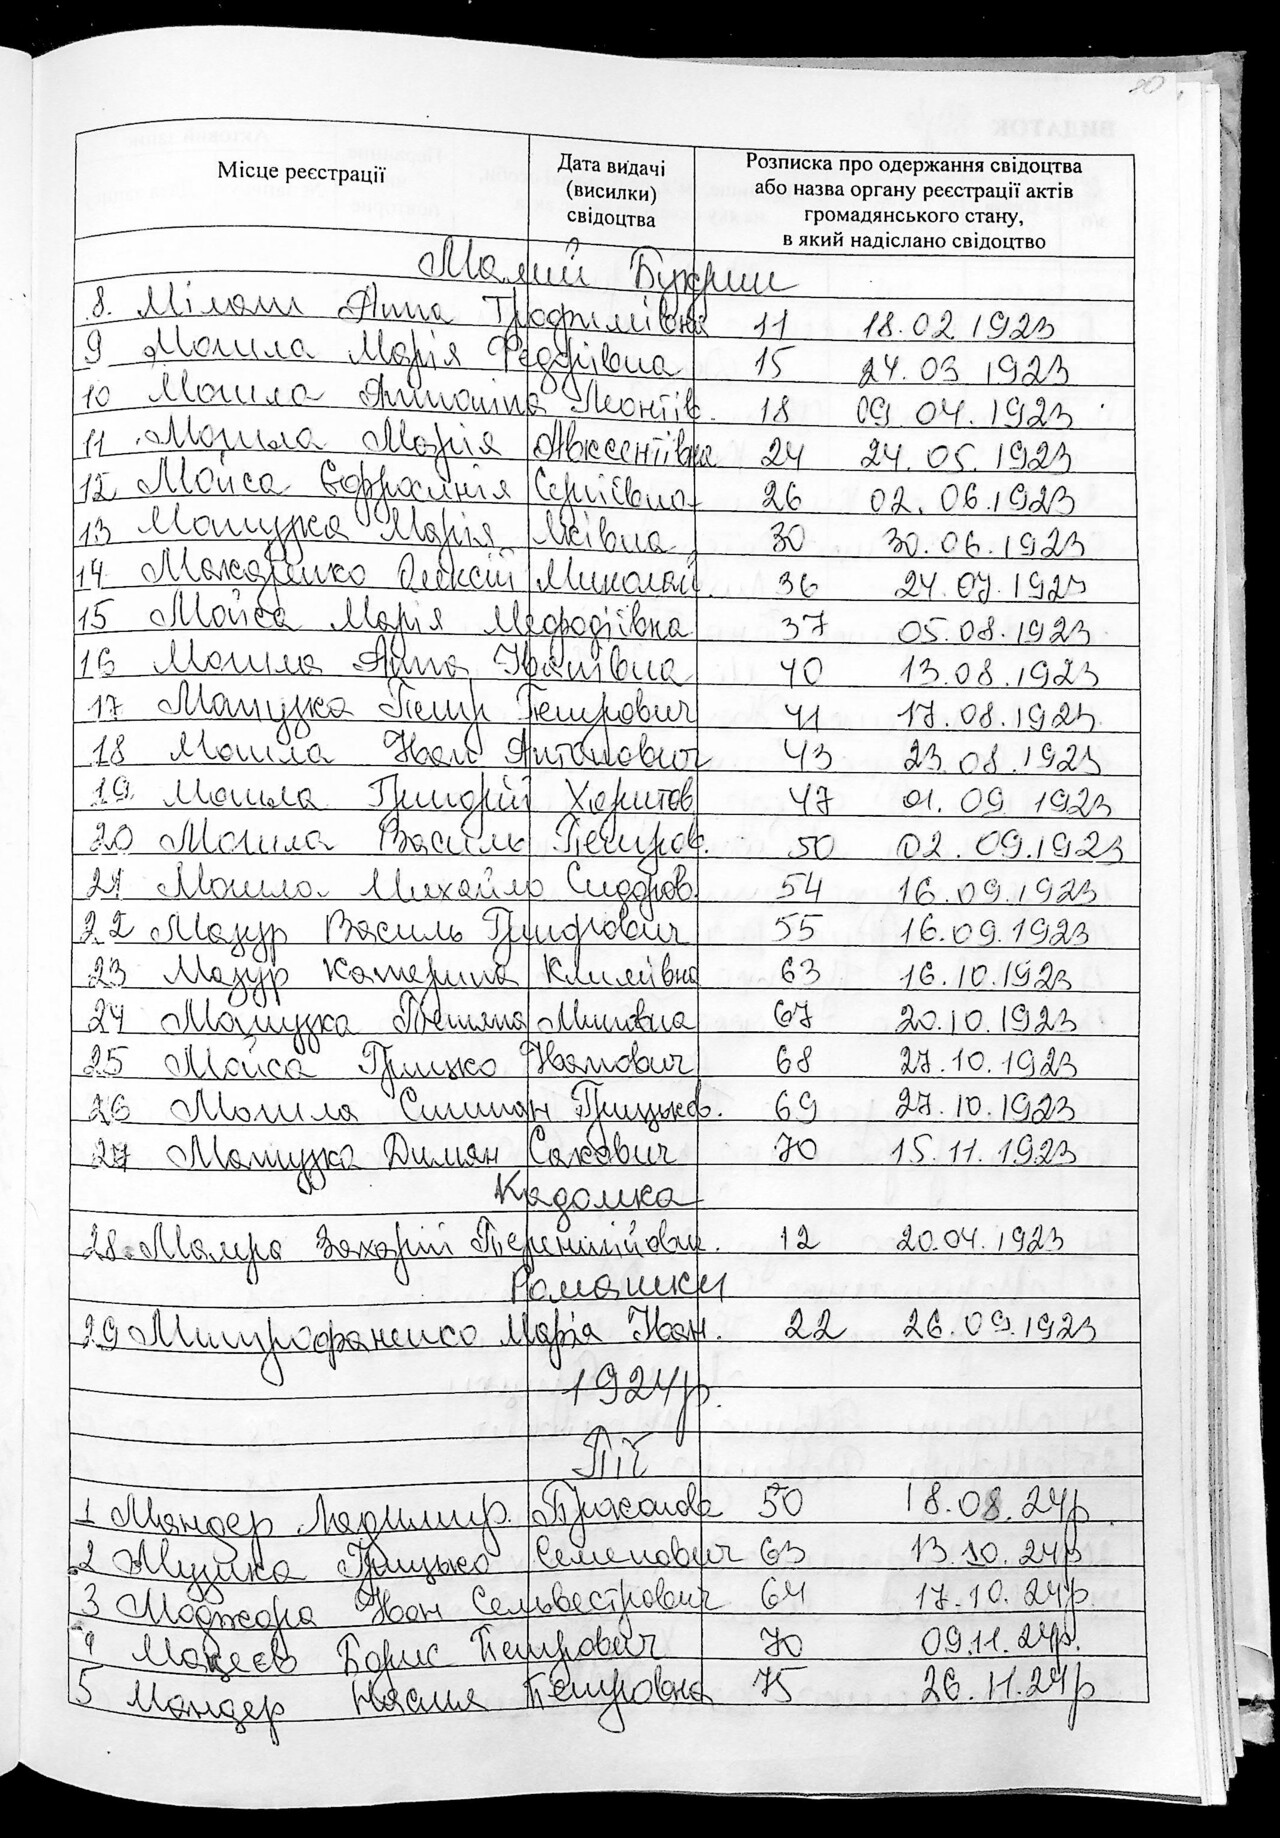 80
Місце реєстрації
Дата видачі
(висилки)
свідоцтва
Розписка про одержання свідоцтва
або назва органу реєстрації актів
громадянського стану,
в який надіслано свідоцтво
Малий Букрин
8. Мілаш Анна Трофимівна 11 18.02.1923
9 Могила Марія Федорівна 15 24.03.1923
10 Могила Антоніна Леонтів. 18 09.04.1923
11 Могила Марія Авксентівна 24 24.05.1923
12 Мойса Єфросинія Сергіївна 26 02.06.1923
13 Мацуука Марія Яківна 30 30.06.1923
14 Макаренко Олексій Миколай. 36 24.07.1923
15 Мойса Марія Мефодіївна 37 05.08.1923
16 Могила Анна Іванівна 40 13.08.1923
17 Петр Петрович 41 17.08.1923
18 Могила Иван Антонович 43 23.08.1923
19 Могила Григорій Харитов. 47 01.09.1923
20 Могила Василь Петров. 50 02.09.1923
21 Могила Михайло Сидоров. 54 16.09.1923
22 Мазур Василь Григрович 55 16.09.1923
23 Мазур Катерина Климівна 63 16.10.1923
24 Тетяна 67 20.10.1923
25 Мойса Грицько Иванович 68 27.10.1923
26 Могила Степан Грицьков. 69 27.10.1923
27 Димян Савович 70 15.11.1923
Кадомка
28. Захарій Терентійович. 12 20.04.1923
Ромашки
29 Митрофаненко Марія Іван. 22 26.09.1923
1924р.
Пії
1 Мандер 50 18.08.24р
2 Музика Грицько Семенович 63 13.10.24р
3 Маджара Иван Сельвестрович 64 17.10.24р
4 Макеєв Борис Петрович 70 09.11.24р.
5 Мандер Настя Петровна 75 26.11.24р